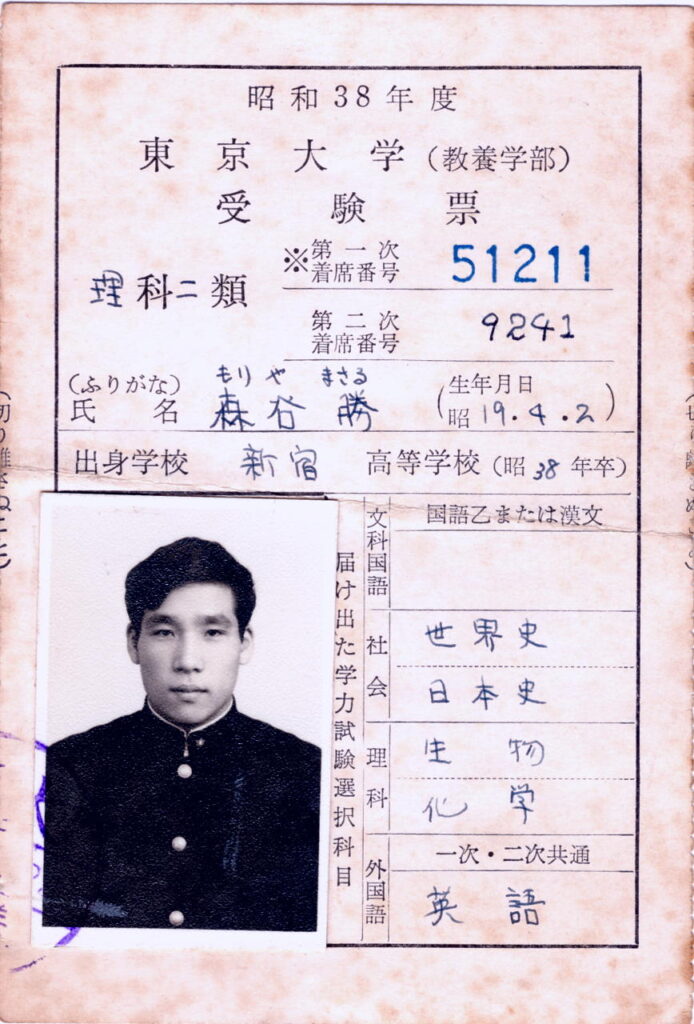 昭和38年度
東京大学(教養学部)
受験票
※第一次着席番号 51211
理科二類
第二次着席番号 9241
(ふりがな) もりや まさる
氏名 森谷 勝
(生年月日 昭19.4.2)
出身学校 新宿 高等学校 (昭38年卒)
届け出た学力試験選択科目
文科国語 国語乙または漢文
社会 世界史
日本史
理科 生物
化学
外国語 一次・二次共通
英語